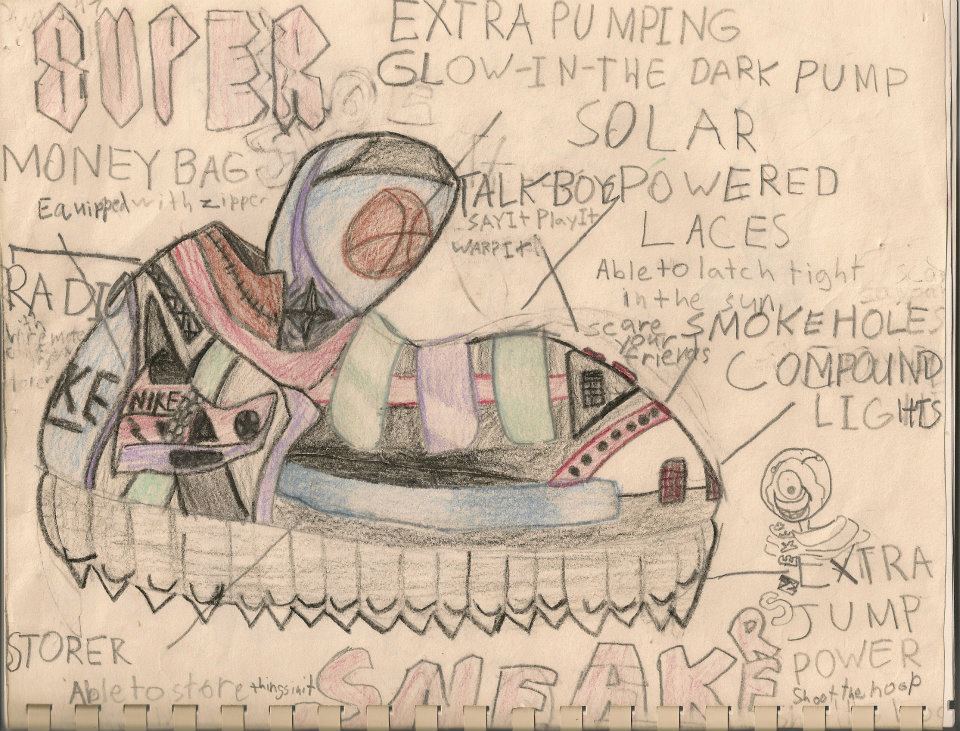 SUPER
EXTRA PUMPING
GLOW-IN-THE DARK PUMP
SOLAR
POWERED
LACES
Able to latch tight
in the sun
MONEY BAG
Equipped with zipper
TALK-BOY
SAY It Play It
WARP It
RADIO
with
scare
your
friends
SMOKE HOLES
COMPOUND
LIGHTS
KE
NIKE
EXTRA
JUMP
POWER
Shoot the hoop
STORER
Able to store things in it
SNEAKER